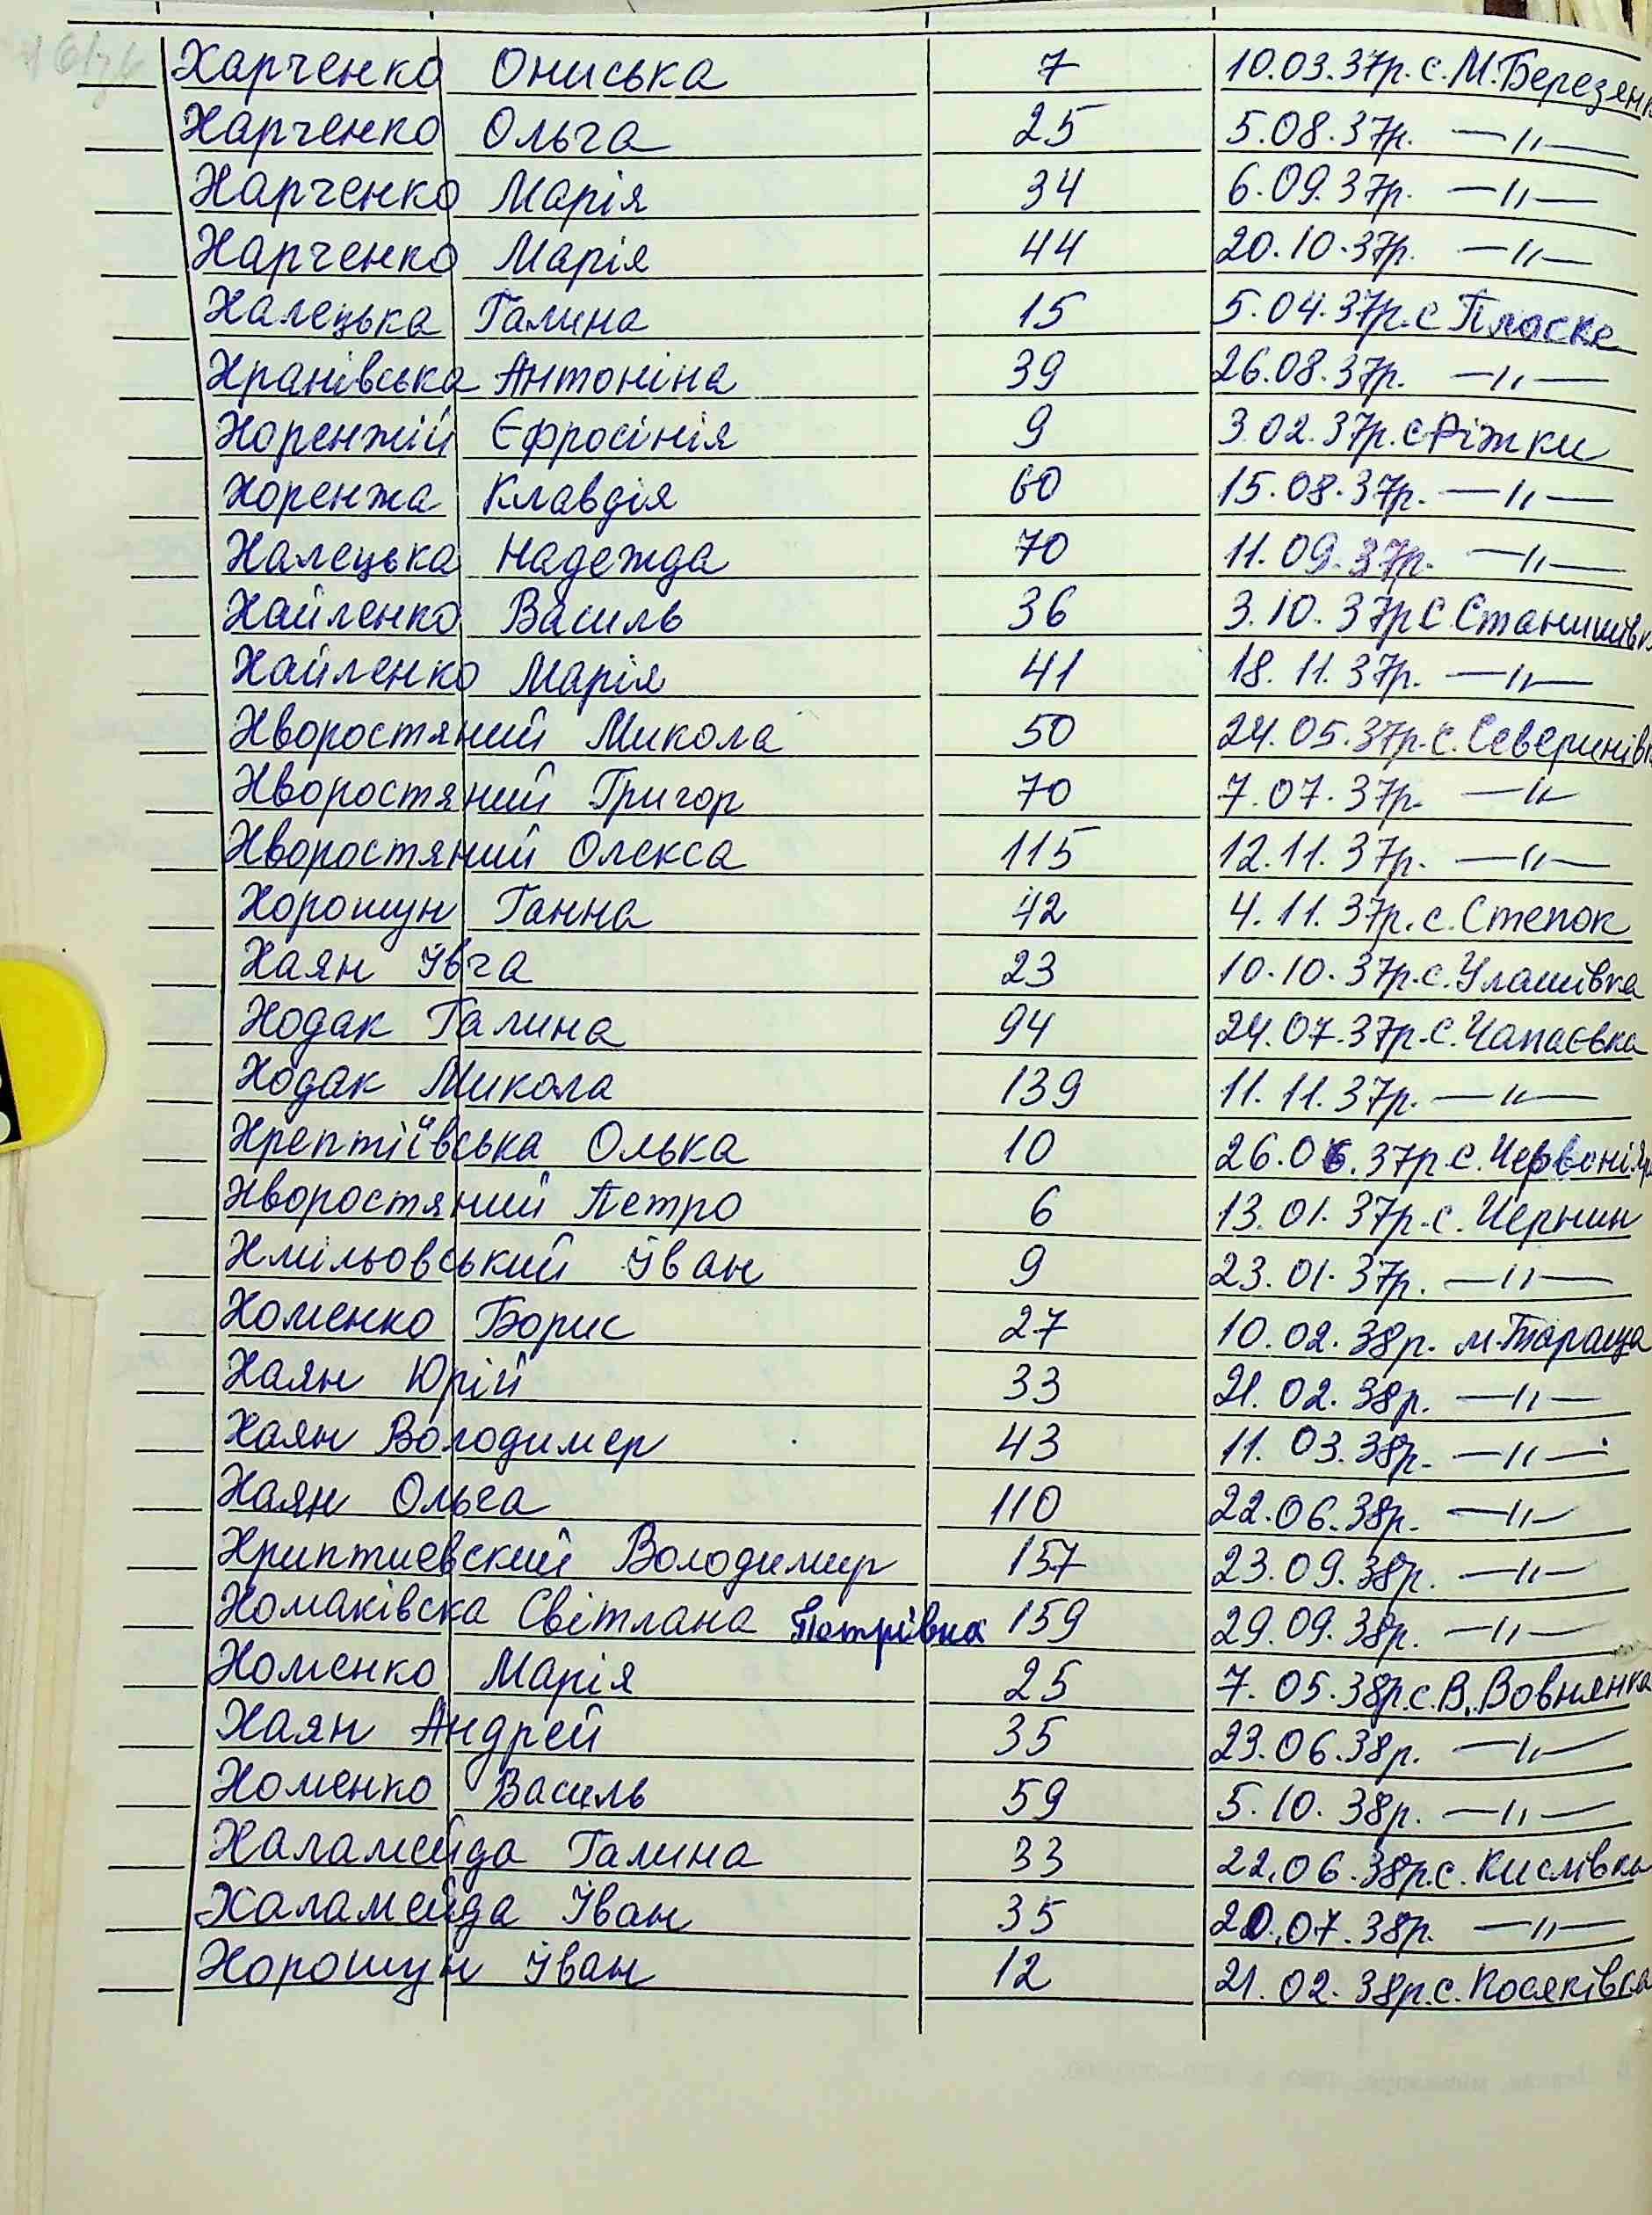 Харченко Ониська 7 10.03.37р. с. М. Березян
Харченко Ольга 25 5.08.37р. —〃—
Харченко Марія 34 6.09.37р. —〃—
Харченко Марія 44 20.10.37р. —〃—
Халецька Галина 15 5.04.37р. с Плоске
Хранівська Антоніна 39 26.08.37р. —〃—
Хоренжій Єфросінія 9 3.02.37р. с Ріжки
Хоренжа Клавдія 60 15.08.37р. —〃—
Халецька Надежда 70 11.09.37р. —〃—
Хайленко Василь 36 3.10.37р С. Станишівк
Хайленко Марія 41 18.11.37р. —〃—
Хворостяний Микола 50 24.05.37р. с. Северинівк
Хворостяний Григор 70 7.07.37р. —〃—
Хворостяний Олекса 115 12.11.37р. —〃—
Хорошун Ганна 42 4.11.37р. с. Степок
Хаян Івга 23 10.10.37р. с. Улашівка
Ходак Галина 94 24.07.37р. с. Чапаєвка
Ходак Микола 139 11.11.37р. —〃—
Хрептіївська Олька 10 26.06.37р. с. Червоні Яр
Хворостяний Петро 6 13.01.37р. с. Чернин
Хмільовський Іван 9 23.01.37р. —〃—
Хоменко Борис 27 10.02.38р. м. Тараща
Хаян Юрій 33 21.02.38р. —〃—
Хаян Володимер 43 11.03.38р. —〃—
Хаян Ольга 110 22.06.38р. —〃—
Хриптиевский Володимир 157 23.09.38р. —〃—
Хомаківска Світлана Петрівна 159 29.09.38р. —〃—
Хоменко Марія 25 7.05.38р. с. В. Вовнянка
Хаян Андрей 35 23.06.38р. —〃—
Хоменко Василь 59 5.10.38р. —〃—
Халамейда Галина 33 22.06.38р. с. Кислівка
Халамейда Іван 35 20.07.38р. —〃—
Хорошун Іван 12 21.02.38р. с. Косяківка